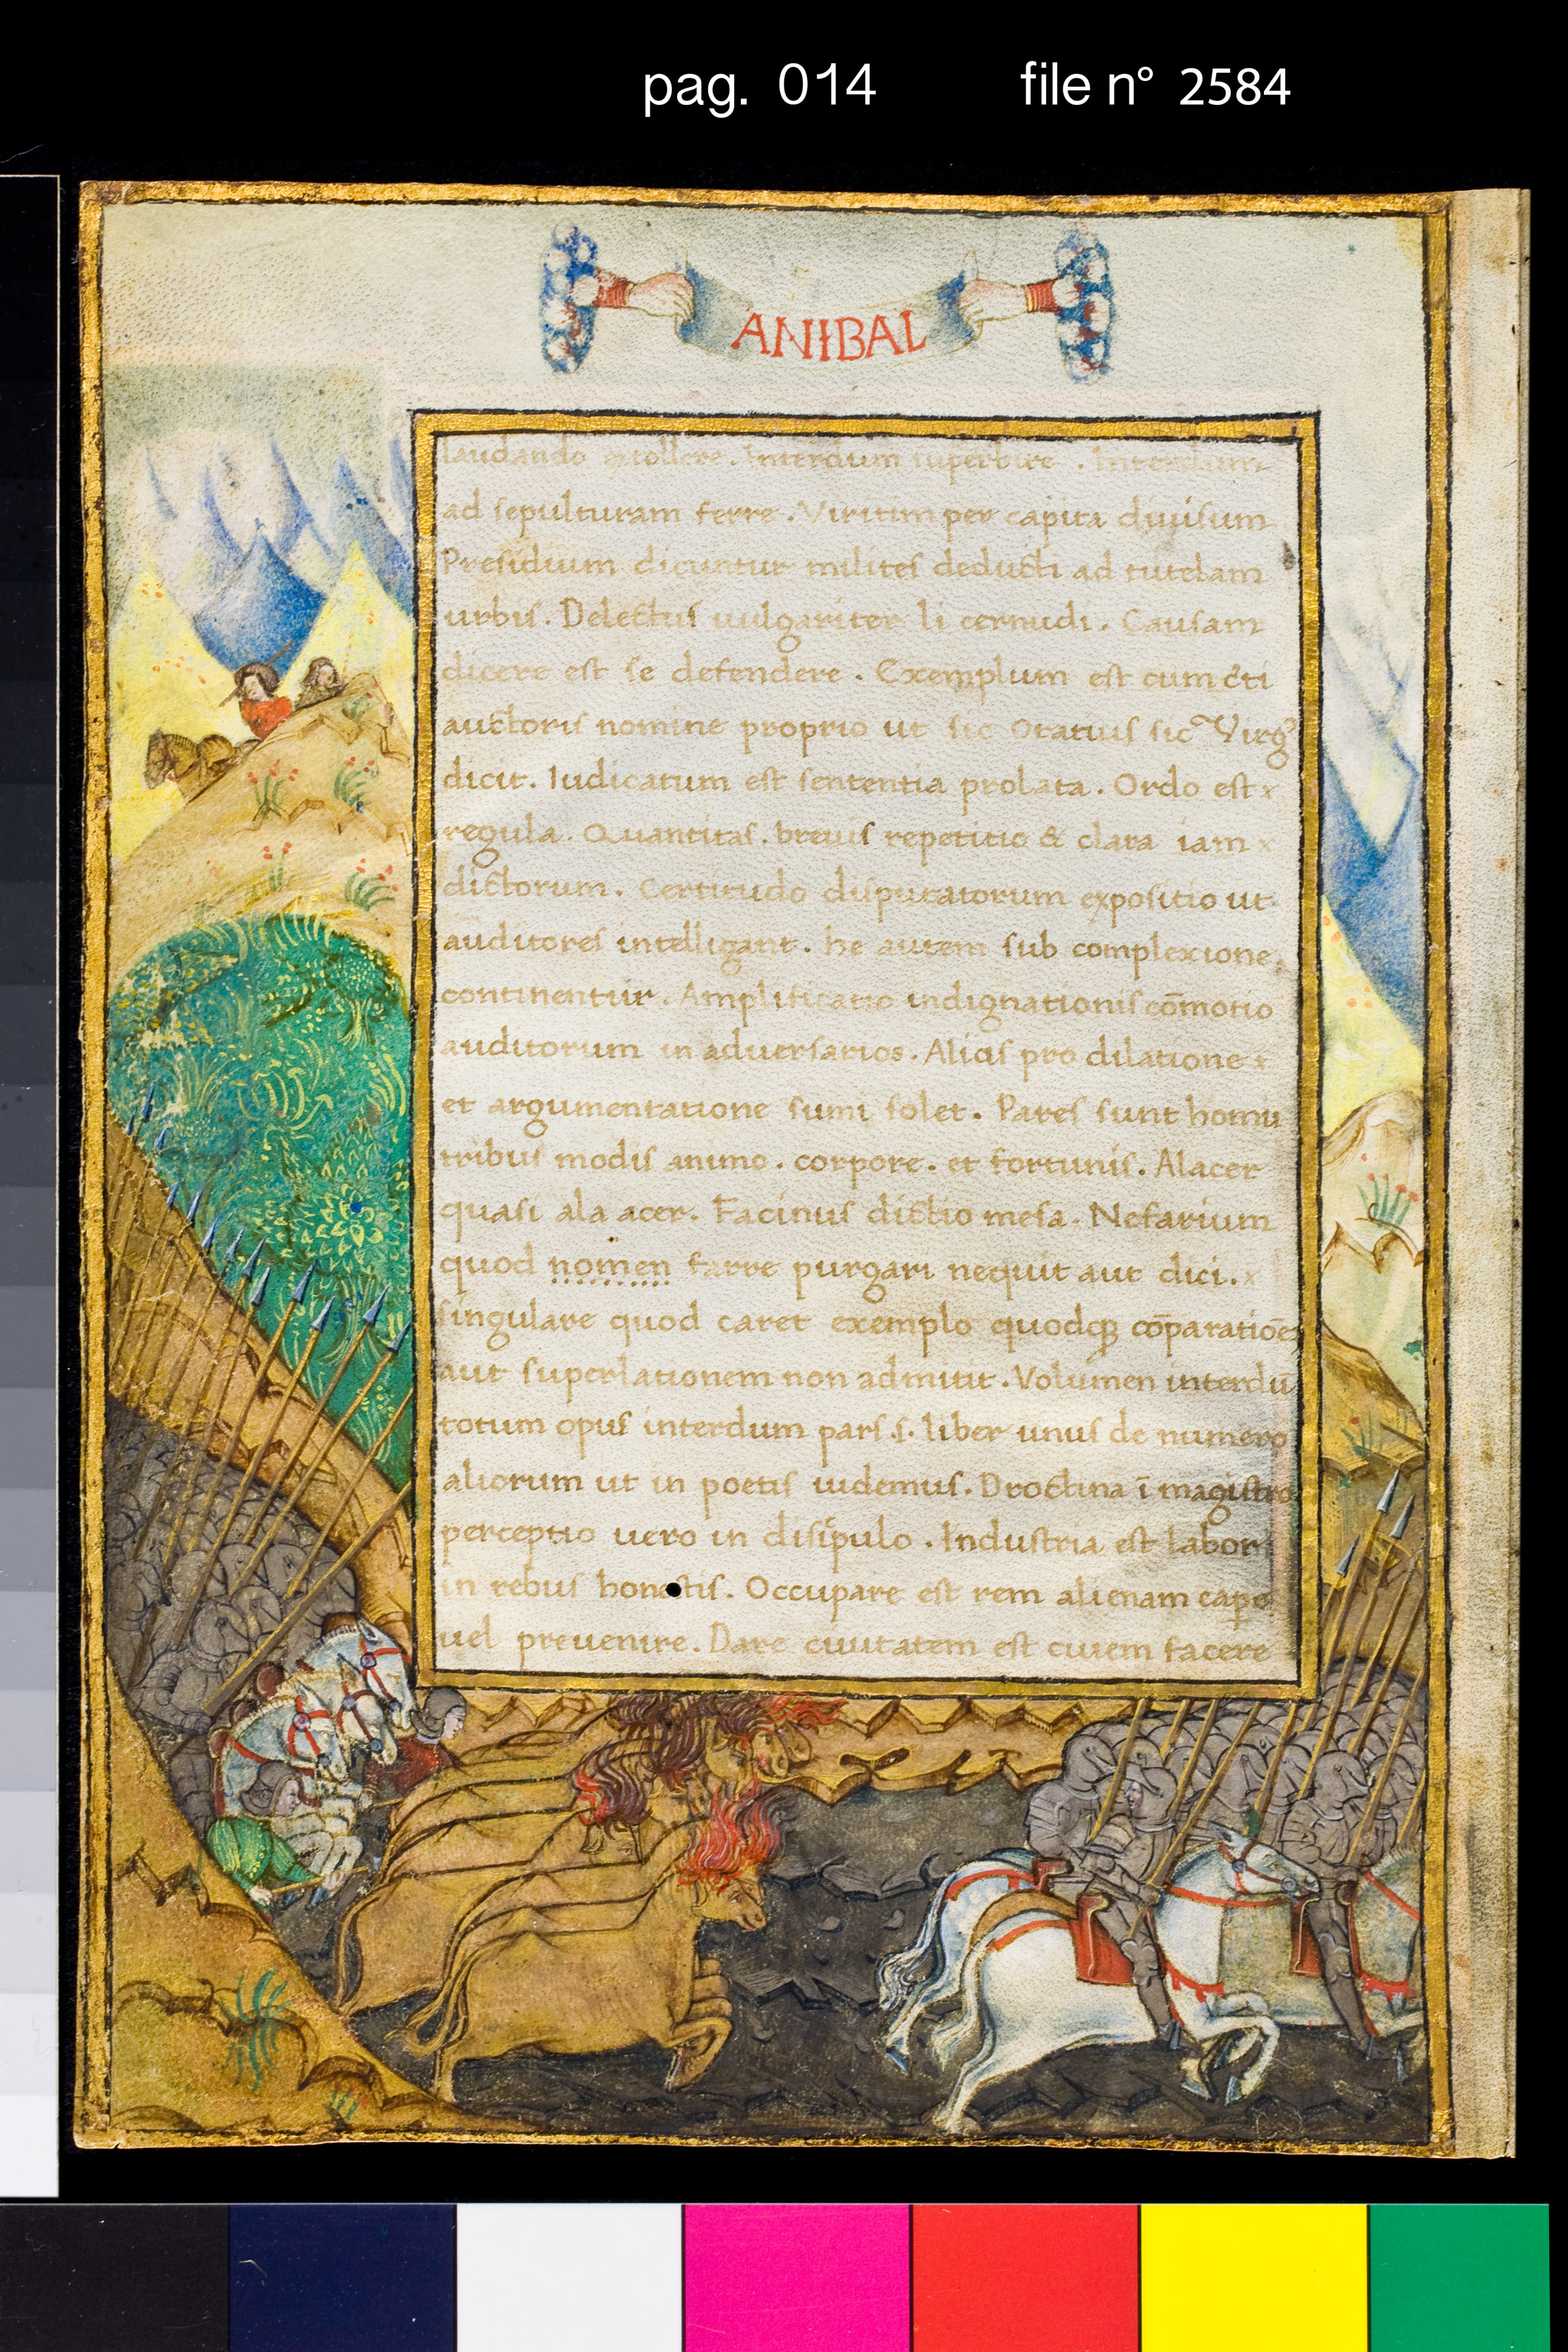 pag. 014 file n° 2584
ANIBAL
laudando extollere. Interdum superbire. Interdum
ad sepulturam ferre. Viritim per capita diuisum
Presidium dicuntur milites deducti ad tutelam
urbis. Delectus uulgariter li cernudi. Causam
dicere est se defendere. Exemplum est cum
auctoris nomine proprio ut sic Oratius sic Virg
dicit. Iudicatum est sententia prolata. Ordo est x
regula. Quantitas. breuis repetitio & clara iam x
dictorum. Certitudo disputatorum expositio ut
auditores intelligant. he autem sub complexione
continentur. Amplificatio indignationis cōmotio
auditorum in aduersarios. Alicis pro dilatione x
et argumentatione sumi solet. Pares sunt homu
tribus modis animo. corpore. et fortunis. Alacer
quasi ala acer. Facinus dictio mesa. Nefarium
quod nomen farre purgari nequit aut dici. x
singulare quod caret exemplo quodqꝫ cōparatiōe
aut superlationem non admitit. Volumen interdū
totum opus interdum pars .s. liber unus de numero
aliorum ut in poetis uidemus. Droctina ī magistro
perceptio uero in disipulo. Industria est labor
in rebus honestis. Occupare est rem alienam
uel preuenire. Dare ciuitatem est ciuem facere